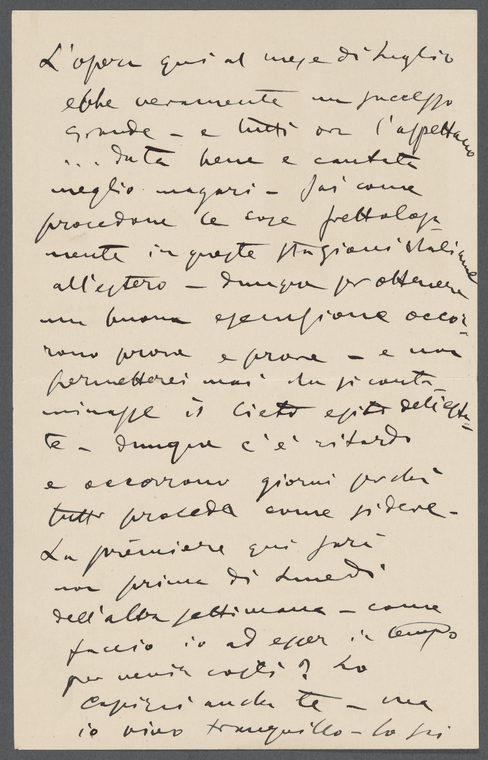 L'opera qui al mese di luglio
ebbe veramente un successo
grande – e tutti ora l'aspettano
... data bene e cantata
meglio magari – Sai come
procedono le cose frettolosa
mente in queste stagioni italiane
all'estero – dunque per ottenere
una buona esecuzione occor-
rono prove e prove – e non
permetterei mai che si conta-
minasse il lieto esito dell'esta-
te – dunque c'è ritardo
e occorrono giorni perché
tutto proceda come si deve –
La première qui sarà
non prima di lunedì
dell'altra settimana – come
faccio io ad esser in tempo
per venir costì? Lo
capisci anche te – ma
io vivo tranquillo – lo sai